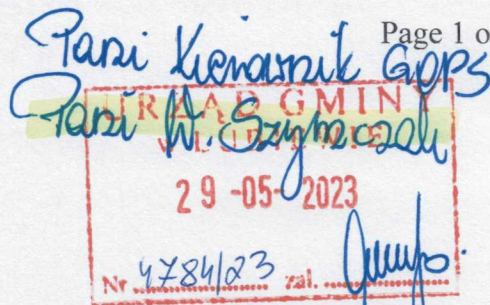 Page 1 o
Pani Kierownik GOPS
Pani W. Szymczak
URZĄD GMINY
29 -05- 2023
Nr 4784/23 zał.